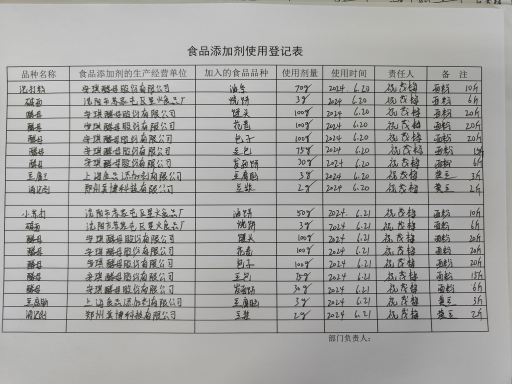 食品添加剂使用登记表
品种名称 食品添加剂的生产经营单位 加入的食品品种 使用剂量 使用时间 责任人 备 注
泡打粉 安琪酵母股份有限公司 油条 70g 2024 6.20 面粉 10斤
碱面 沈阳市 食品厂 烧饼 3g 2024 6.20 面粉 6斤
酵母 安琪酵母股份有限公司 馒头 100g 2024 6.20 面粉 20斤
酵母 安琪酵母股份有限公司 花卷 100g 2024 6.20 面粉 20斤
酵母 安琪酵母股份有限公司 包子 100g 2024 6.20 面粉 20斤
酵母 安琪酵母股份有限公司 豆包 75g 2024 6.20 面粉
酵母 安琪酵母股份有限公司 发面饼 30g 2024 6.20 面粉 6斤
豆腐王 上海食品添加剂有限公司 豆腐脑 3g 2024 6.20 黄豆 3斤
消泡剂 郑州 科技有限公司 豆浆 2g 2024 6.20 黄豆 2斤
小苏打 沈阳市 食品厂 油饼 50g 2024 6.21 面粉 10斤
碱面 沈阳市 食品厂 烧饼 3g 2024 6.21 面粉 6斤
酵母 安琪酵母股份有限公司 馒头 100g 2024 6.21 面粉 20斤
酵母 安琪酵母股份有限公司 花卷 100g 2024 6.21 面粉 20斤
酵母 安琪酵母股份有限公司 包子 100g 2024 6.21 面粉 20斤
酵母 安琪酵母股份有限公司 豆包 75g 2024 6.21 面粉 15斤
酵母 安琪酵母股份有限公司 发面饼 30g 2024 6.21 面粉 6斤
豆腐王 上海食品添加剂有限公司 豆腐脑 3g 2024 6.21 黄豆 3斤
消泡剂 郑州 科技有限公司 豆浆 2g 2024 6.21 黄豆 2斤
部门负责人：